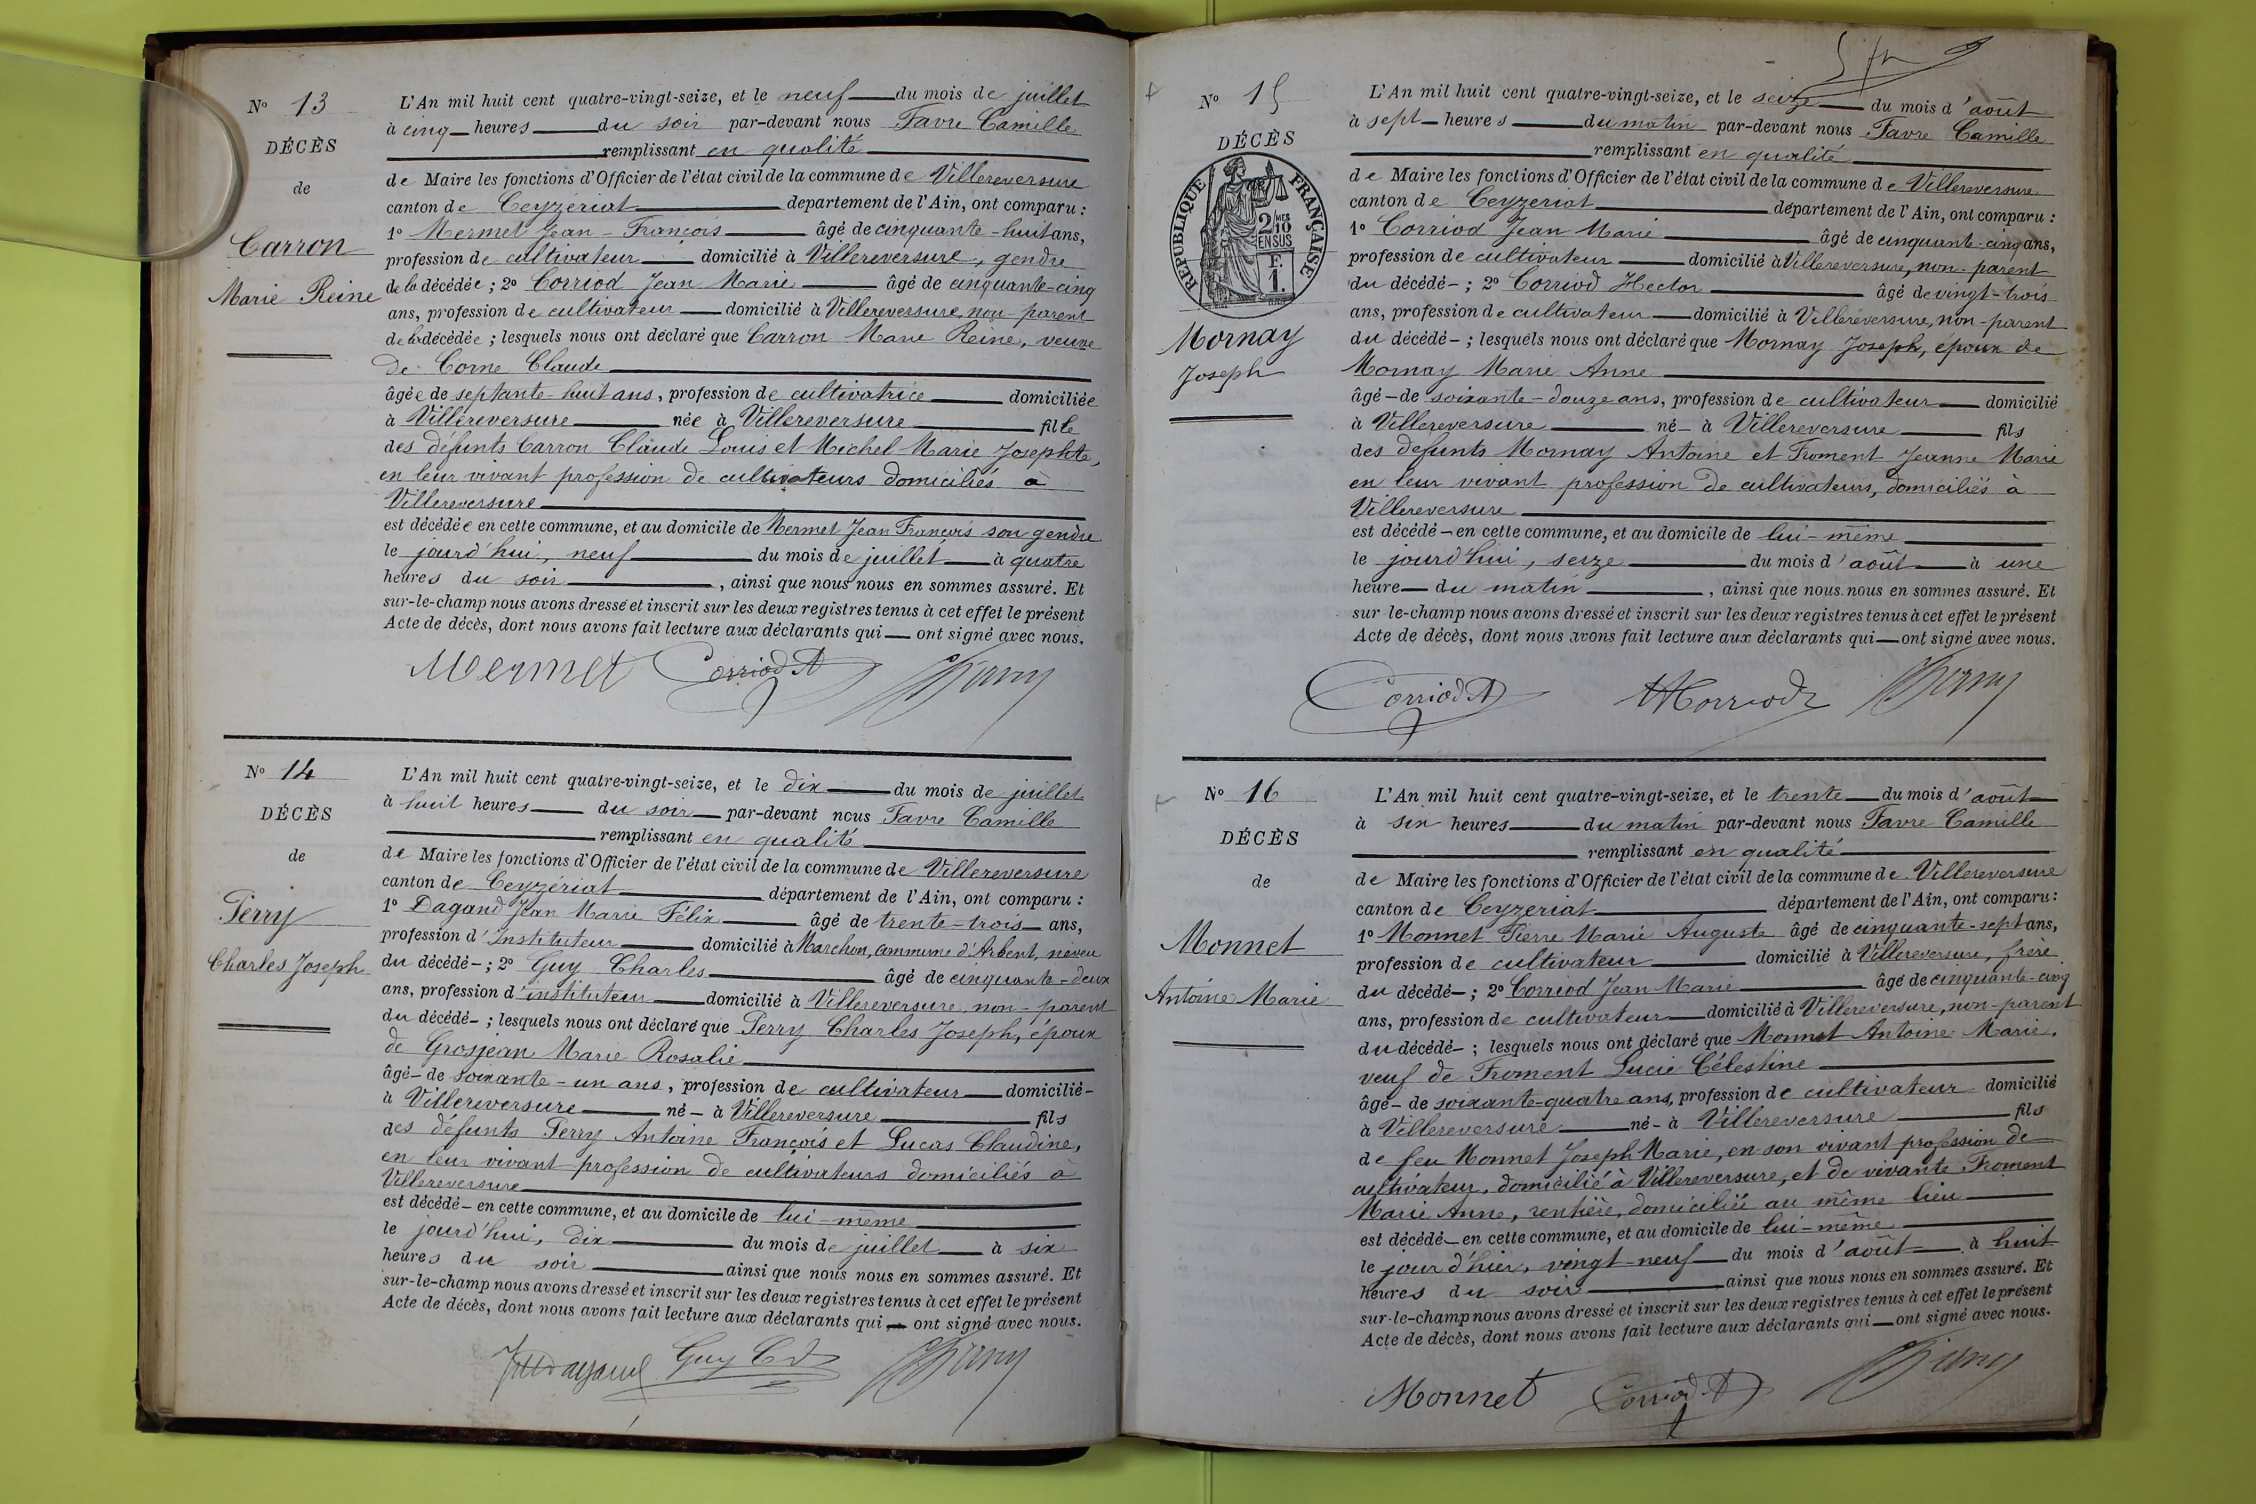 N° 13
DÉCÈS
de
Carron
Marie Reine
L'An mil huit cent quatre-vingt-seize, et le neuf du mois de juillet
à cinq heures du soir par-devant nous Favre Camille
remplissant en qualité
de Maire les fonctions d'Officier de l'état civil de la commune de Villereversure
canton de Ceyzeriat departement de l'Ain, ont comparu :
1° Mermet Jean-François âgé de cinquante-huit ans,
profession de cultivateur domicilié à Villereversure, gendre
de la décédée ; 2° Corriod Jean Marie âgé de cinquante-cinq
ans, profession de cultivateur domicilié à Villereversure, non-parent
de la décédée ; lesquels nous ont déclaré que Carron Marie Reine, veuve
de Corne Claude
âgée de septante-huit ans, profession de cultivatrice domiciliée
à Villereversure née à Villereversure fille
des défunts Carron Claude Louis et Michel Marie Josephte,
en leur vivant profession de cultivateurs domiciliés à
Villereversure
est décédée en cette commune, et au domicile de Mermet Jean François son gendre
le jourd'hui, neuf du mois de juillet à quatre
heures du soir, ainsi que nous nous en sommes assuré. Et
sur-le-champ nous avons dressé et inscrit sur les deux registres tenus à cet effet le présent
Acte de décès, dont nous avons fait lecture aux déclarants qui ont signé avec nous.
Mermet Corriod
N° 14
DÉCÈS
de
Perry
Charles Joseph
L'An mil huit cent quatre-vingt-seize, et le dix du mois de juillet
à huit heures du soir par-devant nous Favre Camille
remplissant en qualité
de Maire les fonctions d'Officier de l'état civil de la commune de Villereversure
canton de Ceyzériat département de l'Ain, ont comparu :
1° Dagand Jean Marie Félix âgé de trente-trois ans,
profession d'Instituteur domicilié à Marchon, commune d'Arbent, neveu
du décédé ; 2° Guy Charles âgé de cinquante-deux
ans, profession d'instituteur domicilié à Villereversure, non-parent
du décédé ; lesquels nous ont déclaré que Perry Charles Joseph, époux
de Grosjean Marie Rosalie
âgé de soixante-un ans, profession de cultivateur domicilié
à Villereversure né à Villereversure fils
des défunts Perry Antoine François et Lucas Claudine,
en leur vivant profession de cultivateurs domiciliés à
Villereversure
est décédé en cette commune, et au domicile de lui-même
le jourd'hui, dix du mois de juillet à six
heures du soir ainsi que nous nous en sommes assuré. Et
sur-le-champ nous avons dressé et inscrit sur les deux registres tenus à cet effet le présent
Acte de décès, dont nous avons fait lecture aux déclarants qui ont signé avec nous.
Guy
N° 15
DÉCÈS
RÉPUBLIQUE FRANÇAISE
2/10 EN SUS
F. 1.
Mornay
Joseph
L'An mil huit cent quatre-vingt-seize, et le seize du mois d'août
à sept heures du matin par-devant nous Favre Camille
remplissant en qualité
de Maire les fonctions d'Officier de l'état civil de la commune de Villereversure
canton de Ceyzeriat département de l'Ain, ont comparu :
1° Corriod Jean Marie âgé de cinquante-cinq ans,
profession de cultivateur domicilié à Villereversure, non-parent
du décédé ; 2° Corriod Hector âgé de vingt-trois
ans, profession de cultivateur domicilié à Villereversure, non-parent
du décédé ; lesquels nous ont déclaré que Mornay Joseph, époux de
Mornay Marie Anne
âgé de soixante-douze ans, profession de cultivateur domicilié
à Villereversure né à Villereversure fils
des défunts Mornay Antoine et Froment Jeanne Marie
en leur vivant profession de cultivateurs, domiciliés à
Villereversure
est décédé en cette commune, et au domicile de lui-même
le jourd'hui, seize du mois d'août à une
heure du matin, ainsi que nous nous en sommes assuré. Et
sur-le-champ nous avons dressé et inscrit sur les deux registres tenus à cet effet le présent
Acte de décès, dont nous avons fait lecture aux déclarants qui ont signé avec nous.
Corriod Corriod
N° 16
DÉCÈS
de
Monnet
Antoine Marie
L'An mil huit cent quatre-vingt-seize, et le trente du mois d'août
à six heures du matin par-devant nous Favre Camille
remplissant en qualité
de Maire les fonctions d'Officier de l'état civil de la commune de Villereversure
canton de Ceyzeriat département de l'Ain, ont comparu :
1° Monnet Pierre Marie Auguste âgé de cinquante-sept ans,
profession de cultivateur domicilié à Villereversure, frère
du décédé ; 2° Corriod Jean Marie âgé de cinquante-cinq
ans, profession de cultivateur domicilié à Villereversure, non-parent
du décédé ; lesquels nous ont déclaré que Monnet Antoine Marie,
veuf de Froment Lucie Célestine
âgé de soixante-quatre ans, profession de cultivateur domicilié
à Villereversure né à Villereversure fils
de feu Monnet Joseph Marie, en son vivant profession de
cultivateur, domicilié à Villereversure, et de vivante Froment
Marie Anne, rentière, domiciliée au même lieu
est décédé en cette commune, et au domicile de lui-même
le jour d'hier, vingt-neuf du mois d'août à huit
heures du soir ainsi que nous nous en sommes assuré. Et
sur-le-champ nous avons dressé et inscrit sur les deux registres tenus à cet effet le présent
Acte de décès, dont nous avons fait lecture aux déclarants qui ont signé avec nous.
Monnet Corriod